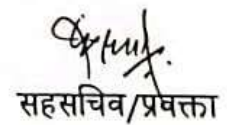 सहसचिव/प्रवक्ता